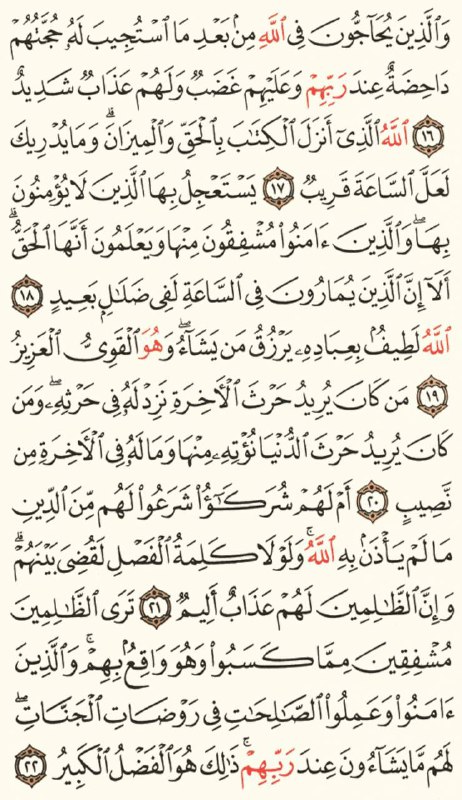 وَالَّذِينَ يُحَاجُّونَ فِي اللَّهِ مِنۢ بَعْدِ مَا اسْتُجِيبَ لَهُۥ حُجَّتُهُمْ
دَاحِضَةٌ عِندَ رَبِّهِمْ وَعَلَيْهِمْ غَضَبٌ وَلَهُمْ عَذَابٌ شَدِيدٌ
١٦ اللَّهُ الَّذِيٓ أَنزَلَ الْكِتَٰبَ بِالْحَقِّ وَالْمِيزَانَۗ وَمَا يُدْرِيكَ
لَعَلَّ السَّاعَةَ قَرِيبٌ ١٧ يَسْتَعْجِلُ بِهَا الَّذِينَ لَا يُؤْمِنُونَ
بِهَاۖ وَالَّذِينَ ءَامَنُوا۟ مُشْفِقُونَ مِنْهَا وَيَعْلَمُونَ أَنَّهَا الْحَقُّۗ
أَلَآ إِنَّ الَّذِينَ يُمَارُونَ فِي السَّاعَةِ لَفِي ضَلَٰلٍۭ بَعِيدٍ ١٨
اللَّهُ لَطِيفٌۢ بِعِبَادِهِۦ يَرْزُقُ مَن يَشَآءُۖ وَهُوَ الْقَوِيُّ الْعَزِيزُ
١٩ مَن كَانَ يُرِيدُ حَرْثَ الْأَخِرَةِ نَزِدْ لَهُۥ فِي حَرْثِهِۦۖ وَمَن
كَانَ يُرِيدُ حَرْثَ الدُّنْيَا نُؤْتِهِۦ مِنْهَا وَمَا لَهُۥ فِي الْأَخِرَةِ مِن
نَّصِيبٍ ٢٠ أَمْ لَهُمْ شُرَكَٰٓؤُا۟ شَرَعُوا۟ لَهُم مِّنَ الدِّينِ
مَا لَمْ يَأْذَنۢ بِهِ اللَّهُۚ وَلَوْلَا كَلِمَةُ الْفَصْلِ لَقُضِيَ بَيْنَهُمْۗ
وَإِنَّ الظَّٰلِمِينَ لَهُمْ عَذَابٌ أَلِيمٌ ٢١ تَرَى الظَّٰلِمِينَ
مُشْفِقِينَ مِمَّا كَسَبُوا۟ وَهُوَ وَاقِعٌۢ بِهِمْۗ وَالَّذِينَ
ءَامَنُوا۟ وَعَمِلُوا۟ الصَّٰلِحَٰتِ فِي رَوْضَاتِ الْجَنَّاتِۖ
لَهُم مَّا يَشَآءُونَ عِندَ رَبِّهِمْۚ ذَٰلِكَ هُوَ الْفَضْلُ الْكَبِيرُ ٢٢